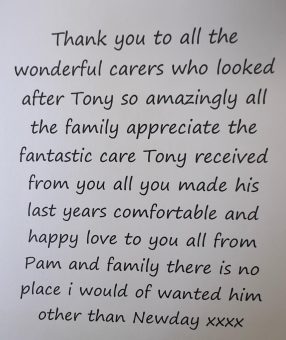 Thank you to all the
wonderful carers who looked
after Tony so amazingly all
the family appreciate the
fantastic care Tony received
from you all you made his
last years comfortable and
happy love to you all from
Pam and family there is no
place i would of wanted him
other than Newday xxxx